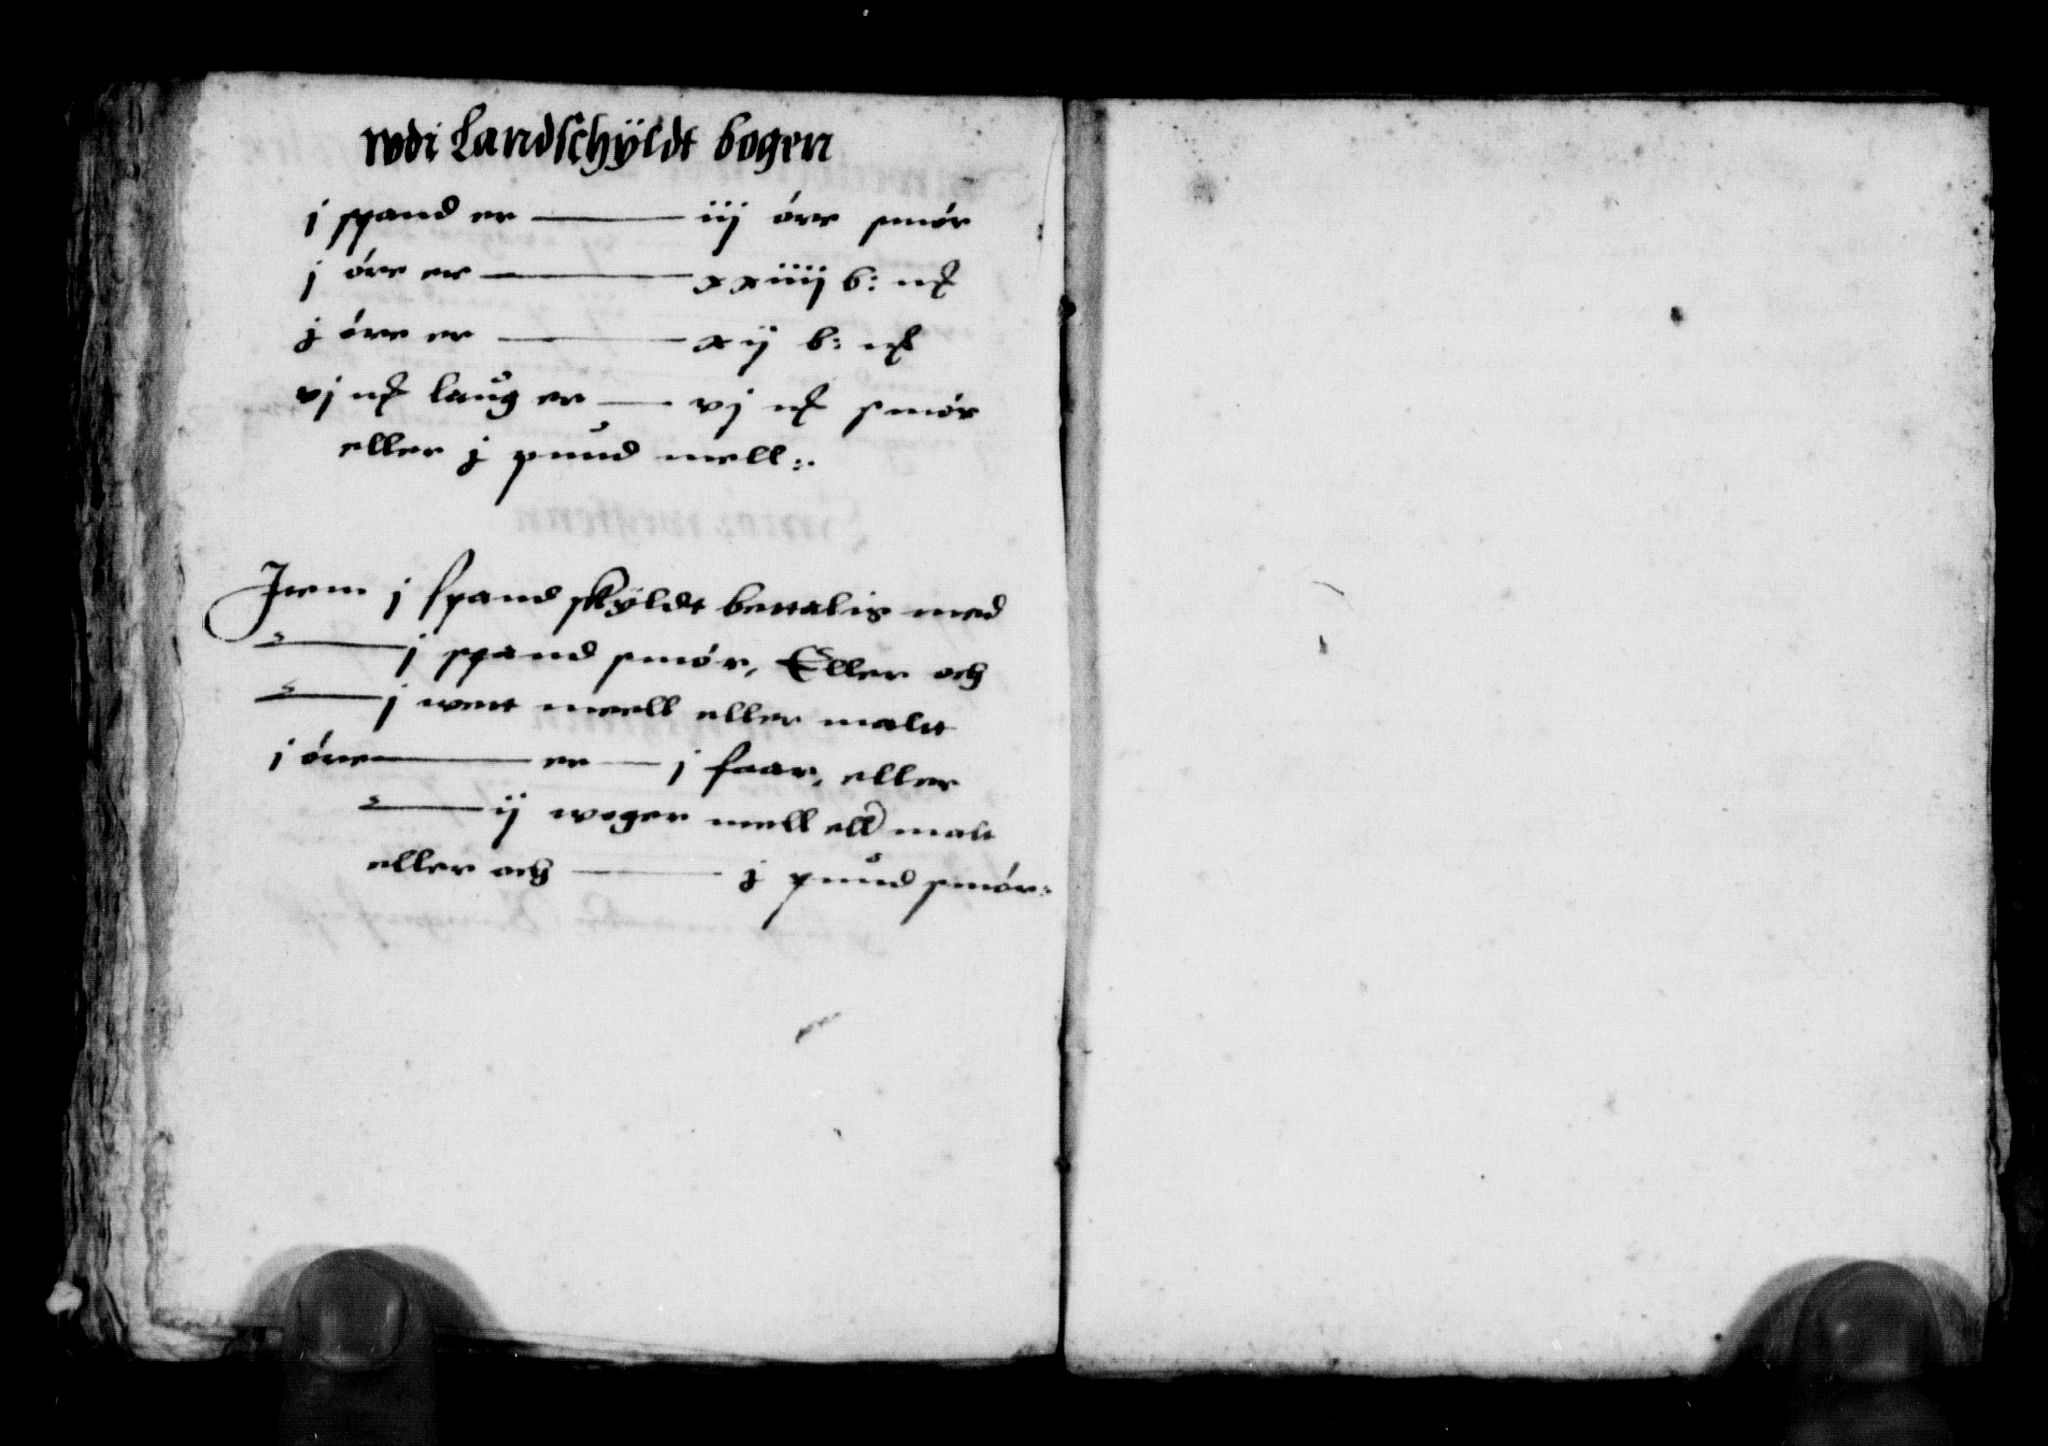 wdi Landschÿldt bogen
j spand er ——— iij óre smór
j óre er ——— xxiiij b: 
j óre er ——— xij b: 
vj laug er —— vj smór
eller j pund mell:.
Item j spand skÿldt bettalis med
——— j spand smór, Eller och
——— j wett meell eller maltt
j óre ——— er —— j faar, eller
——— ij woger mell ell malt
eller och ——— j pund smór: